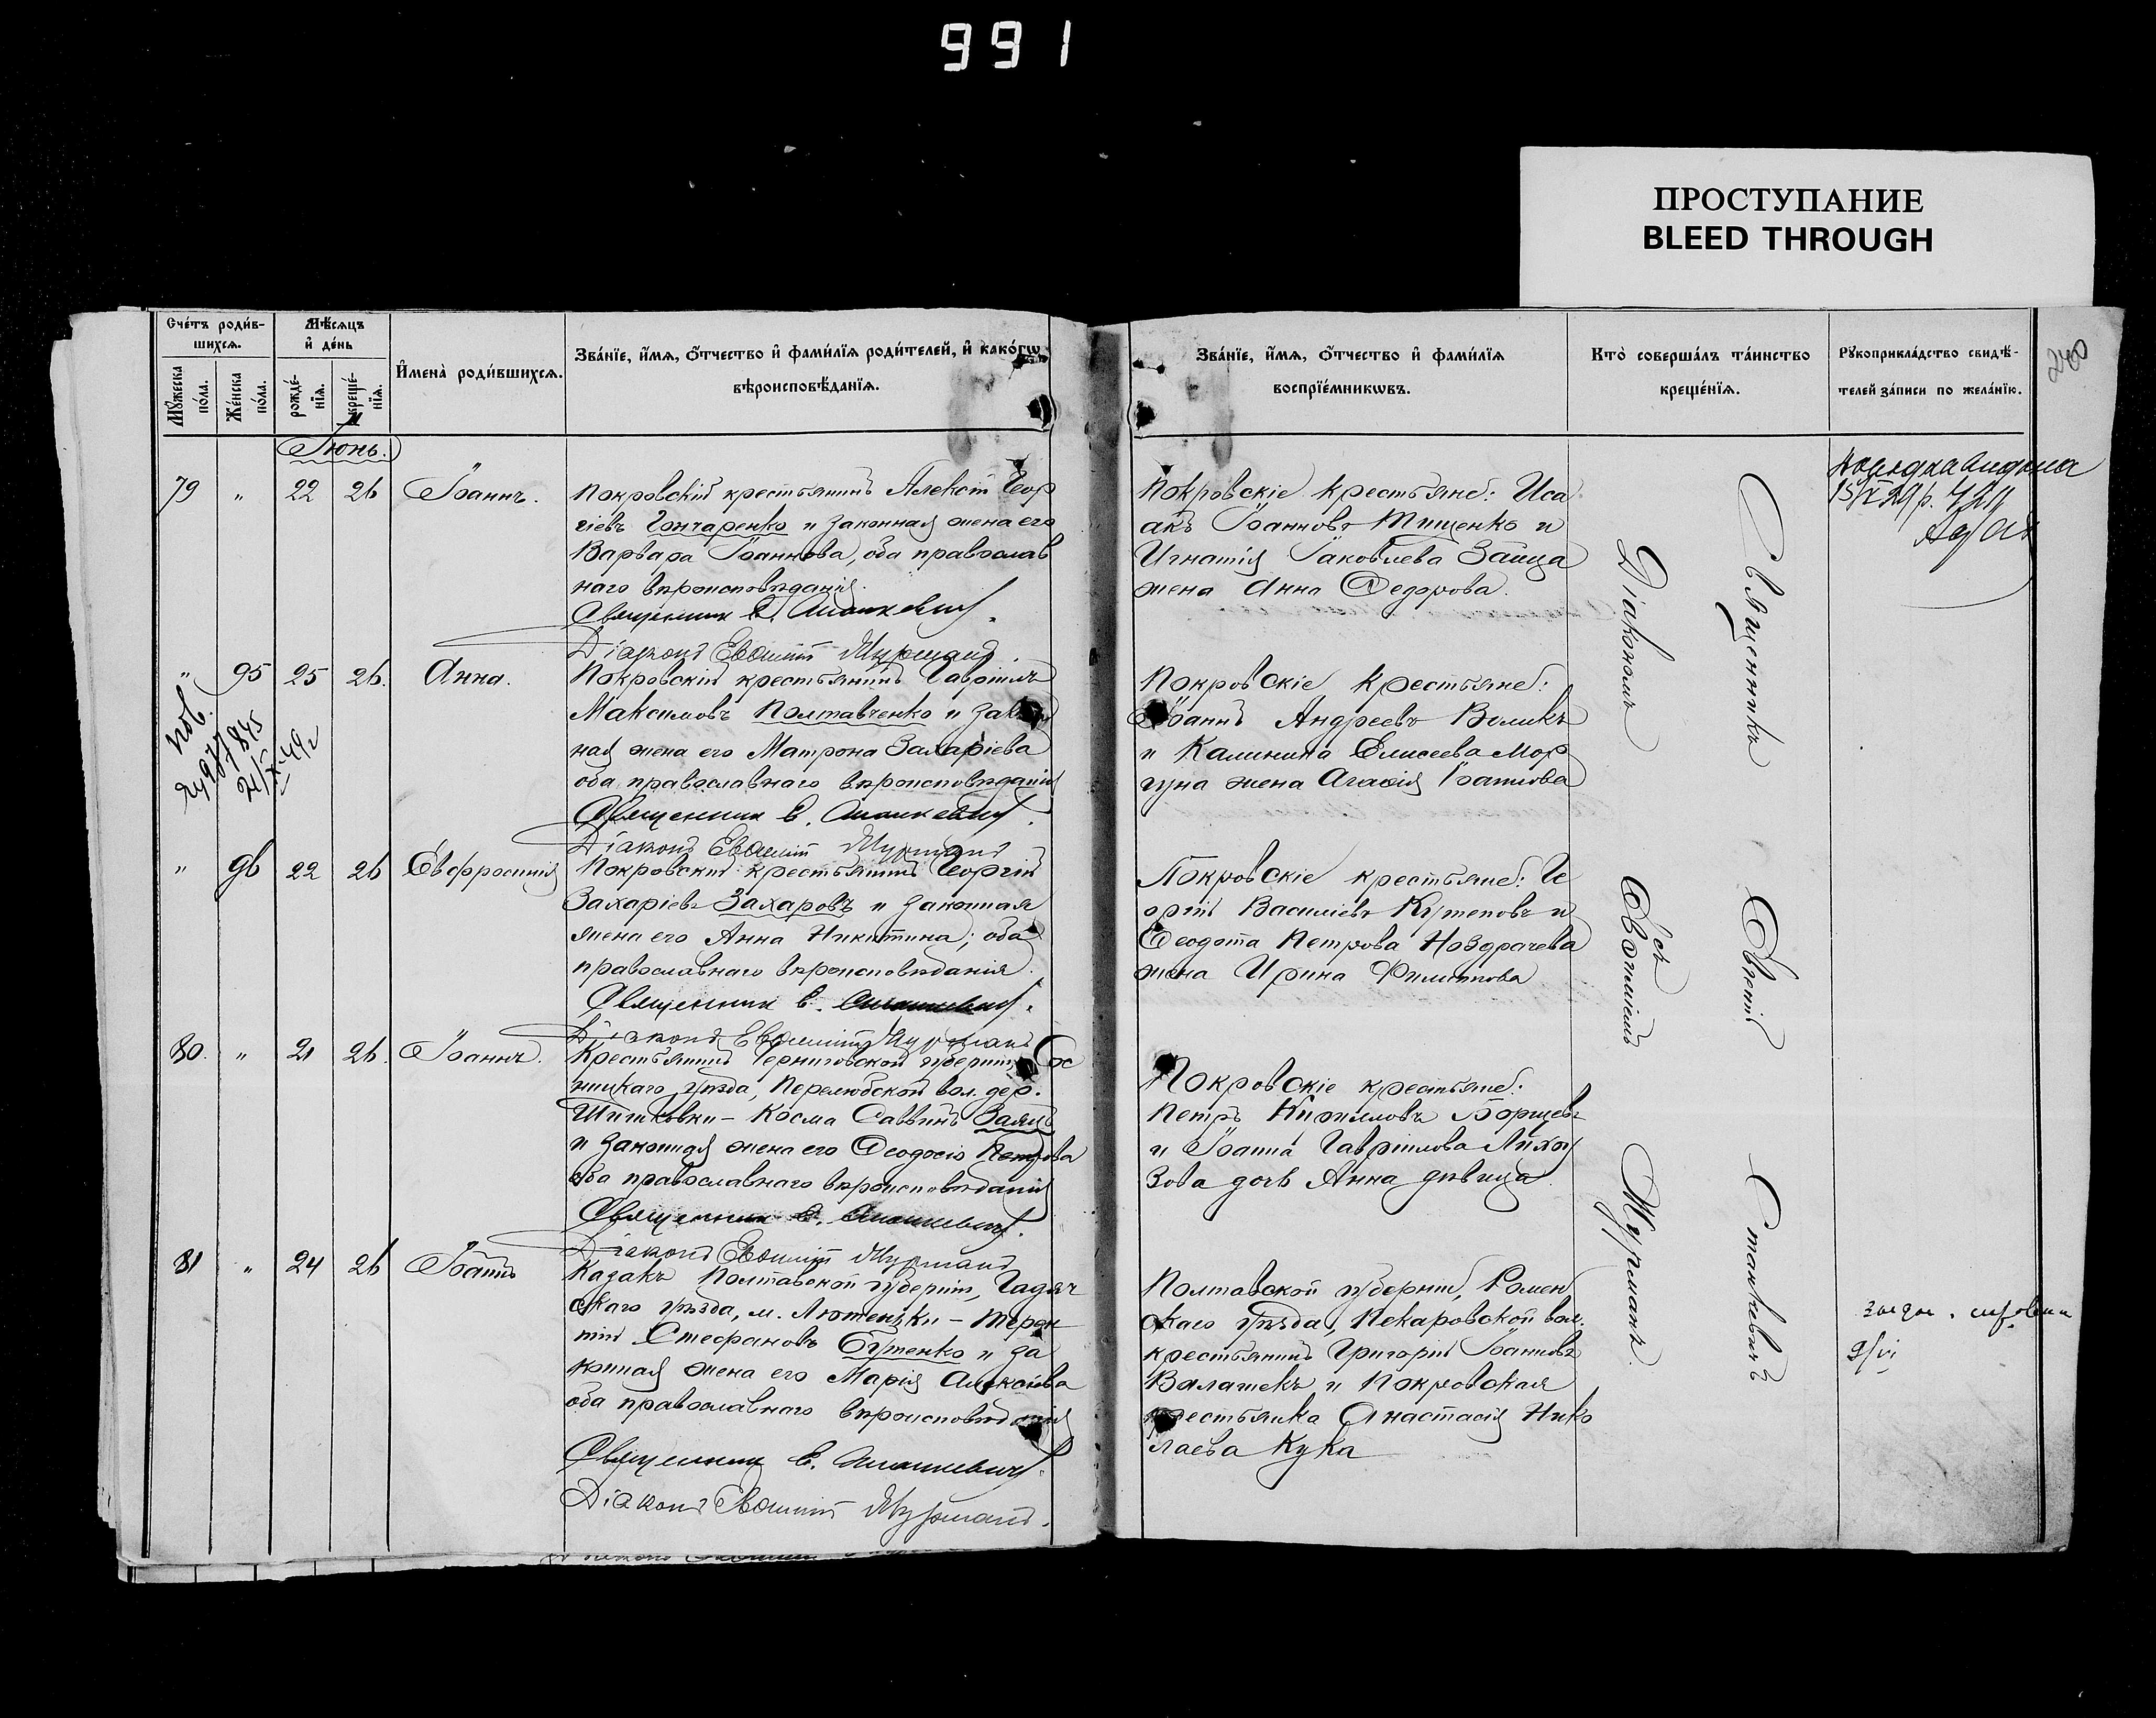 991
ПРОСТУПАНИЕ
BLEED THROUGH
Счетъ родив-
шихся.
Мѣсяцъ
и день
Мужеска
пола.
Женска
пола.
рожде-
нія.
креще-
нія.
Имена родившихся.
Званіе, имя, отчество и фамилія родителей, и какогω
вѣроисповѣданія.
Званіе, имя, отчество и фамилія
воспріемникωвъ.
Кто совершалъ таинство
крещенія.
Рукоприкладство свидѣ-
телей записи по желанію.
Іюнь.
79 " 22 26 Іоаннъ.
Покровскій крестьянинъ Алексій Геор
гіевъ Гончаренко и законная жена его
Варвара Іоаннова, оба православ
наго вѣроисповѣданія.
Священникъ Е. Станкевичъ.
Діаконъ Евѳимій Мурманъ.
Покровскіе крестьяне: Иса
акъ Іоанновъ Тищенко и
Игнатія Іаковлева Зайца
жена Анна Ѳедорова.
" 95 25 26. Анна.
Покровскій крестьянинъ Гавріилъ
Максимовъ Полтавченко и закон
ная жена его Матрона Захаріева
оба православнаго вѣроисповѣданія
Священникъ Е. Станкевичъ.
Діаконъ Евѳимій Мурманъ
Покровскіе крестьяне:
Іоаннъ Андреевъ Воликъ
и Калинина Елисеева Мор
гуна жена Агаѳія Іоаннова
" 96 22 26 Евфросинія
Покровскій крестьянинъ Георгій
Захаріевъ Захаровъ и законная
жена его Анна Никитина; оба
православнаго вѣроисповѣданія.
Священникъ Е. Станкевичъ.
Діаконъ Евѳимій Мурманъ
Покровскіе крестьяне: Ге
оргій Василіевъ Кутеповъ и
Ѳеодота Петрова Ноздрачева
жена Ирина Филиппова
80. " 21 26. Іоаннъ.
Крестьянинъ Черниговской губерніи, Сос
ницкаго уѣзда, Перелюбской вол. дер.
Косма Саввинъ Заяцъ
и законная жена его Ѳеодосія Петрова
оба православнаго вѣроисповѣданія
Священникъ Е. Станкевичъ.
Діаконъ Евѳимій Мурманъ
Покровскіе крестьяне:
Петръ Кирилловъ Борщевъ
и Іоанна Гавріилова
дочь Анна дѣвица.
81 " 24 26 Іоаннъ
Казакъ Полтавской губерніи, Гадяч
скаго уѣзда, м. Лютеньки - Терен
тій Стефановъ Бутенко и за
конная жена его Марія Алексіева
оба православнаго вѣроисповѣданія
Священникъ Е. Станкевичъ.
Діаконъ Евѳимій Мурманъ.
Полтавской губерніи, Ромен
скаго уѣзда, Пекаровской вол.
крестьянинъ Григорій Іоанновъ
и Покровская
крестьянка Анастасія Нико
лаева Кука
Священникъ Евгеній Станкевичъ
Діакономъ Евѳиміемъ Мурманъ.